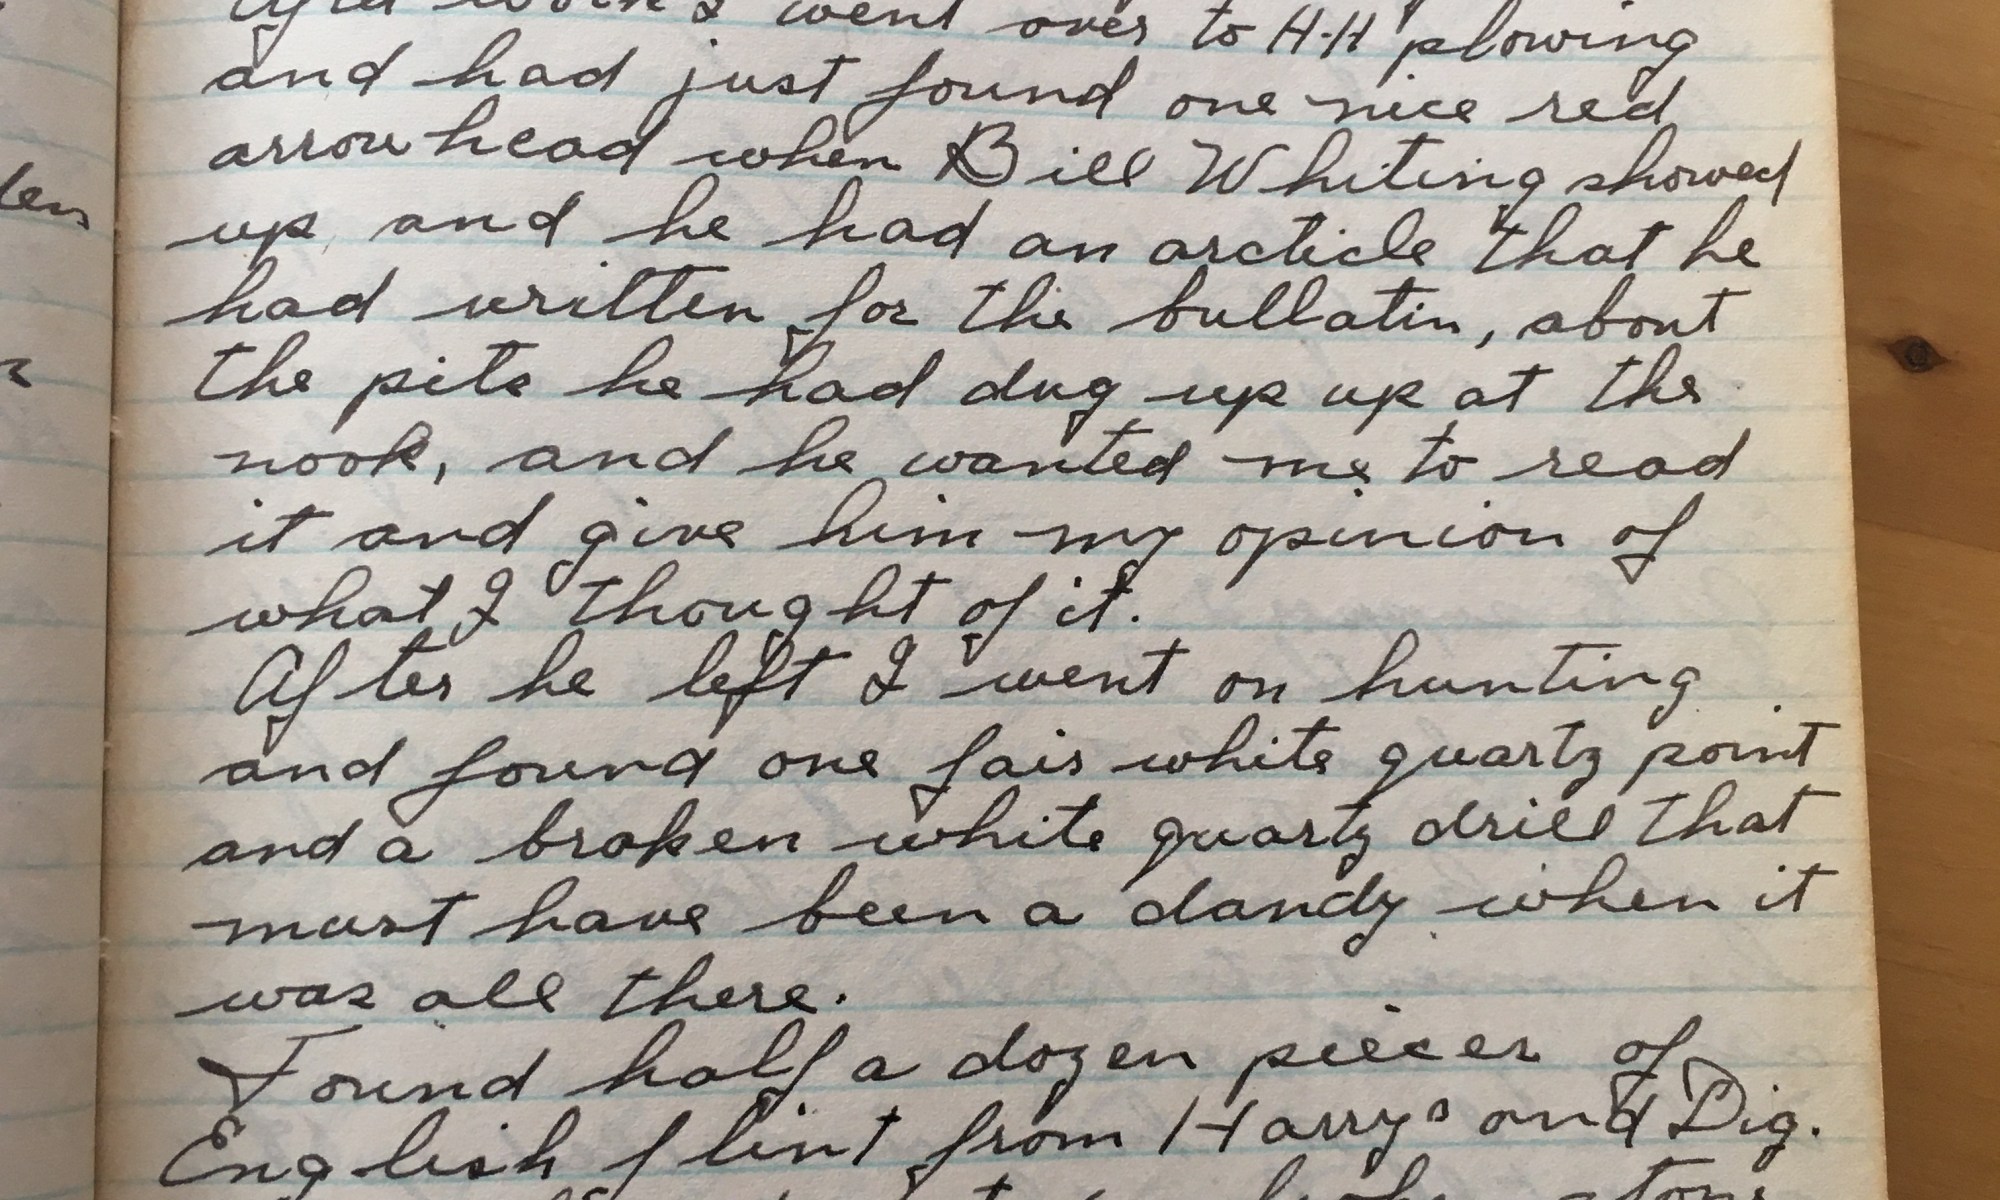 After work I went over to H-H plowing
and had just found one nice red
arrow head when Bill Whiting showed
up and he had an arcticle that he
had written for the bullatin, about
the pits he had dug up up at the
nook, and he wanted me to read
it and give him my opinion of
what I thought of it.
After he left I went on hunting
and found one fair white quartz point
and a broken white quartz drill that
must have been a dandy when it
was all there.
Found half a dozen pieces of
English flint from Harrys and Dig.